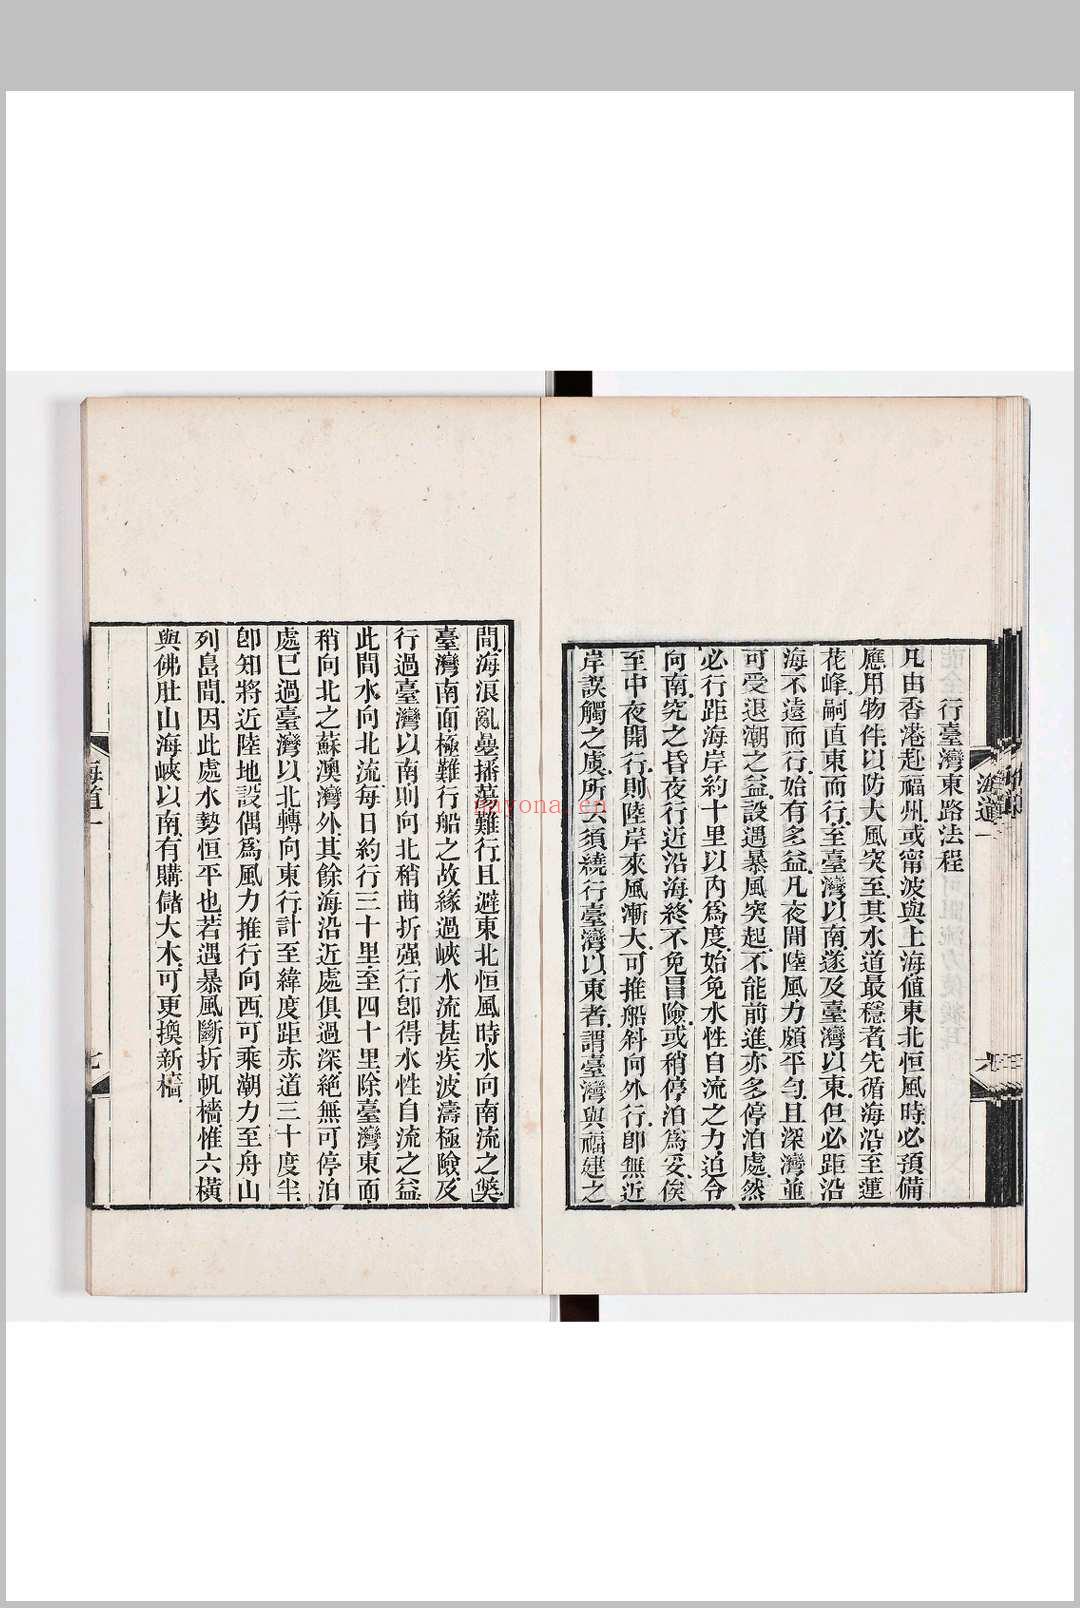 行臺灣東路法程
凡由香港赴福州或甯波與上海值東北恒風時必預備
應用物件以防大風突至其水道最穩者先循海沿至蓮
花峰嗣直東而行至臺灣以南遂及臺灣以東但必距沿
海不遠而行始有多益凡夜間陸風力頗平勻且深灣並
可受退潮之益設遇暴風突起不能前進亦多停泊處然
必行距海岸約十里以內為度始免水性自流之力迫令
向南究之昏夜行近沿海終不免冒險或稍停泊為妥俟
至中夜開行則陸岸來風漸大可推船斜向外行即無近
岸誤觸之虞所云須繞行臺灣以東者謂臺灣與福建之
海道一
六
間海浪亂疊播蕩難行且避東北恒風時水向南流之獘
臺灣南面極難行船之故緣過峽水流甚疾波濤極險及
行過臺灣以南則向北稍曲折强行卽得水性自流之益
此間水向北流每日約行三十里至四十里除臺灣東面
稍向北之蘇澳灣外其餘海沿近處俱過深絕無可停泊
處巳過臺灣以北轉向東行計至緯度距赤道三十度半
卽知將近陸地設偶爲風力推行向西可乘潮力至舟山
列島間因此處水勢恒平也若遇暴風斷折帆檣惟六橫
與佛肚山海峽以南有購儲大木可更換新檣
海道一
七
nnyona.cn